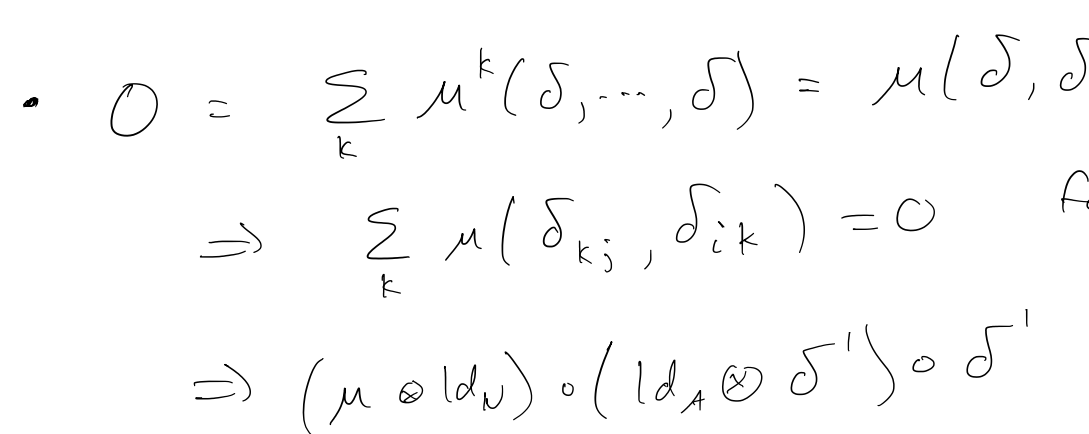 • 0 = Σ_k μ^k(δ, ..., δ) = μ(δ, δ
⇒ Σ_k μ(δ_kj, δ_ik) = 0
⇒ (μ ⊗ Id_N) ∘ (Id_A ⊗ δ^1) ∘ δ^1